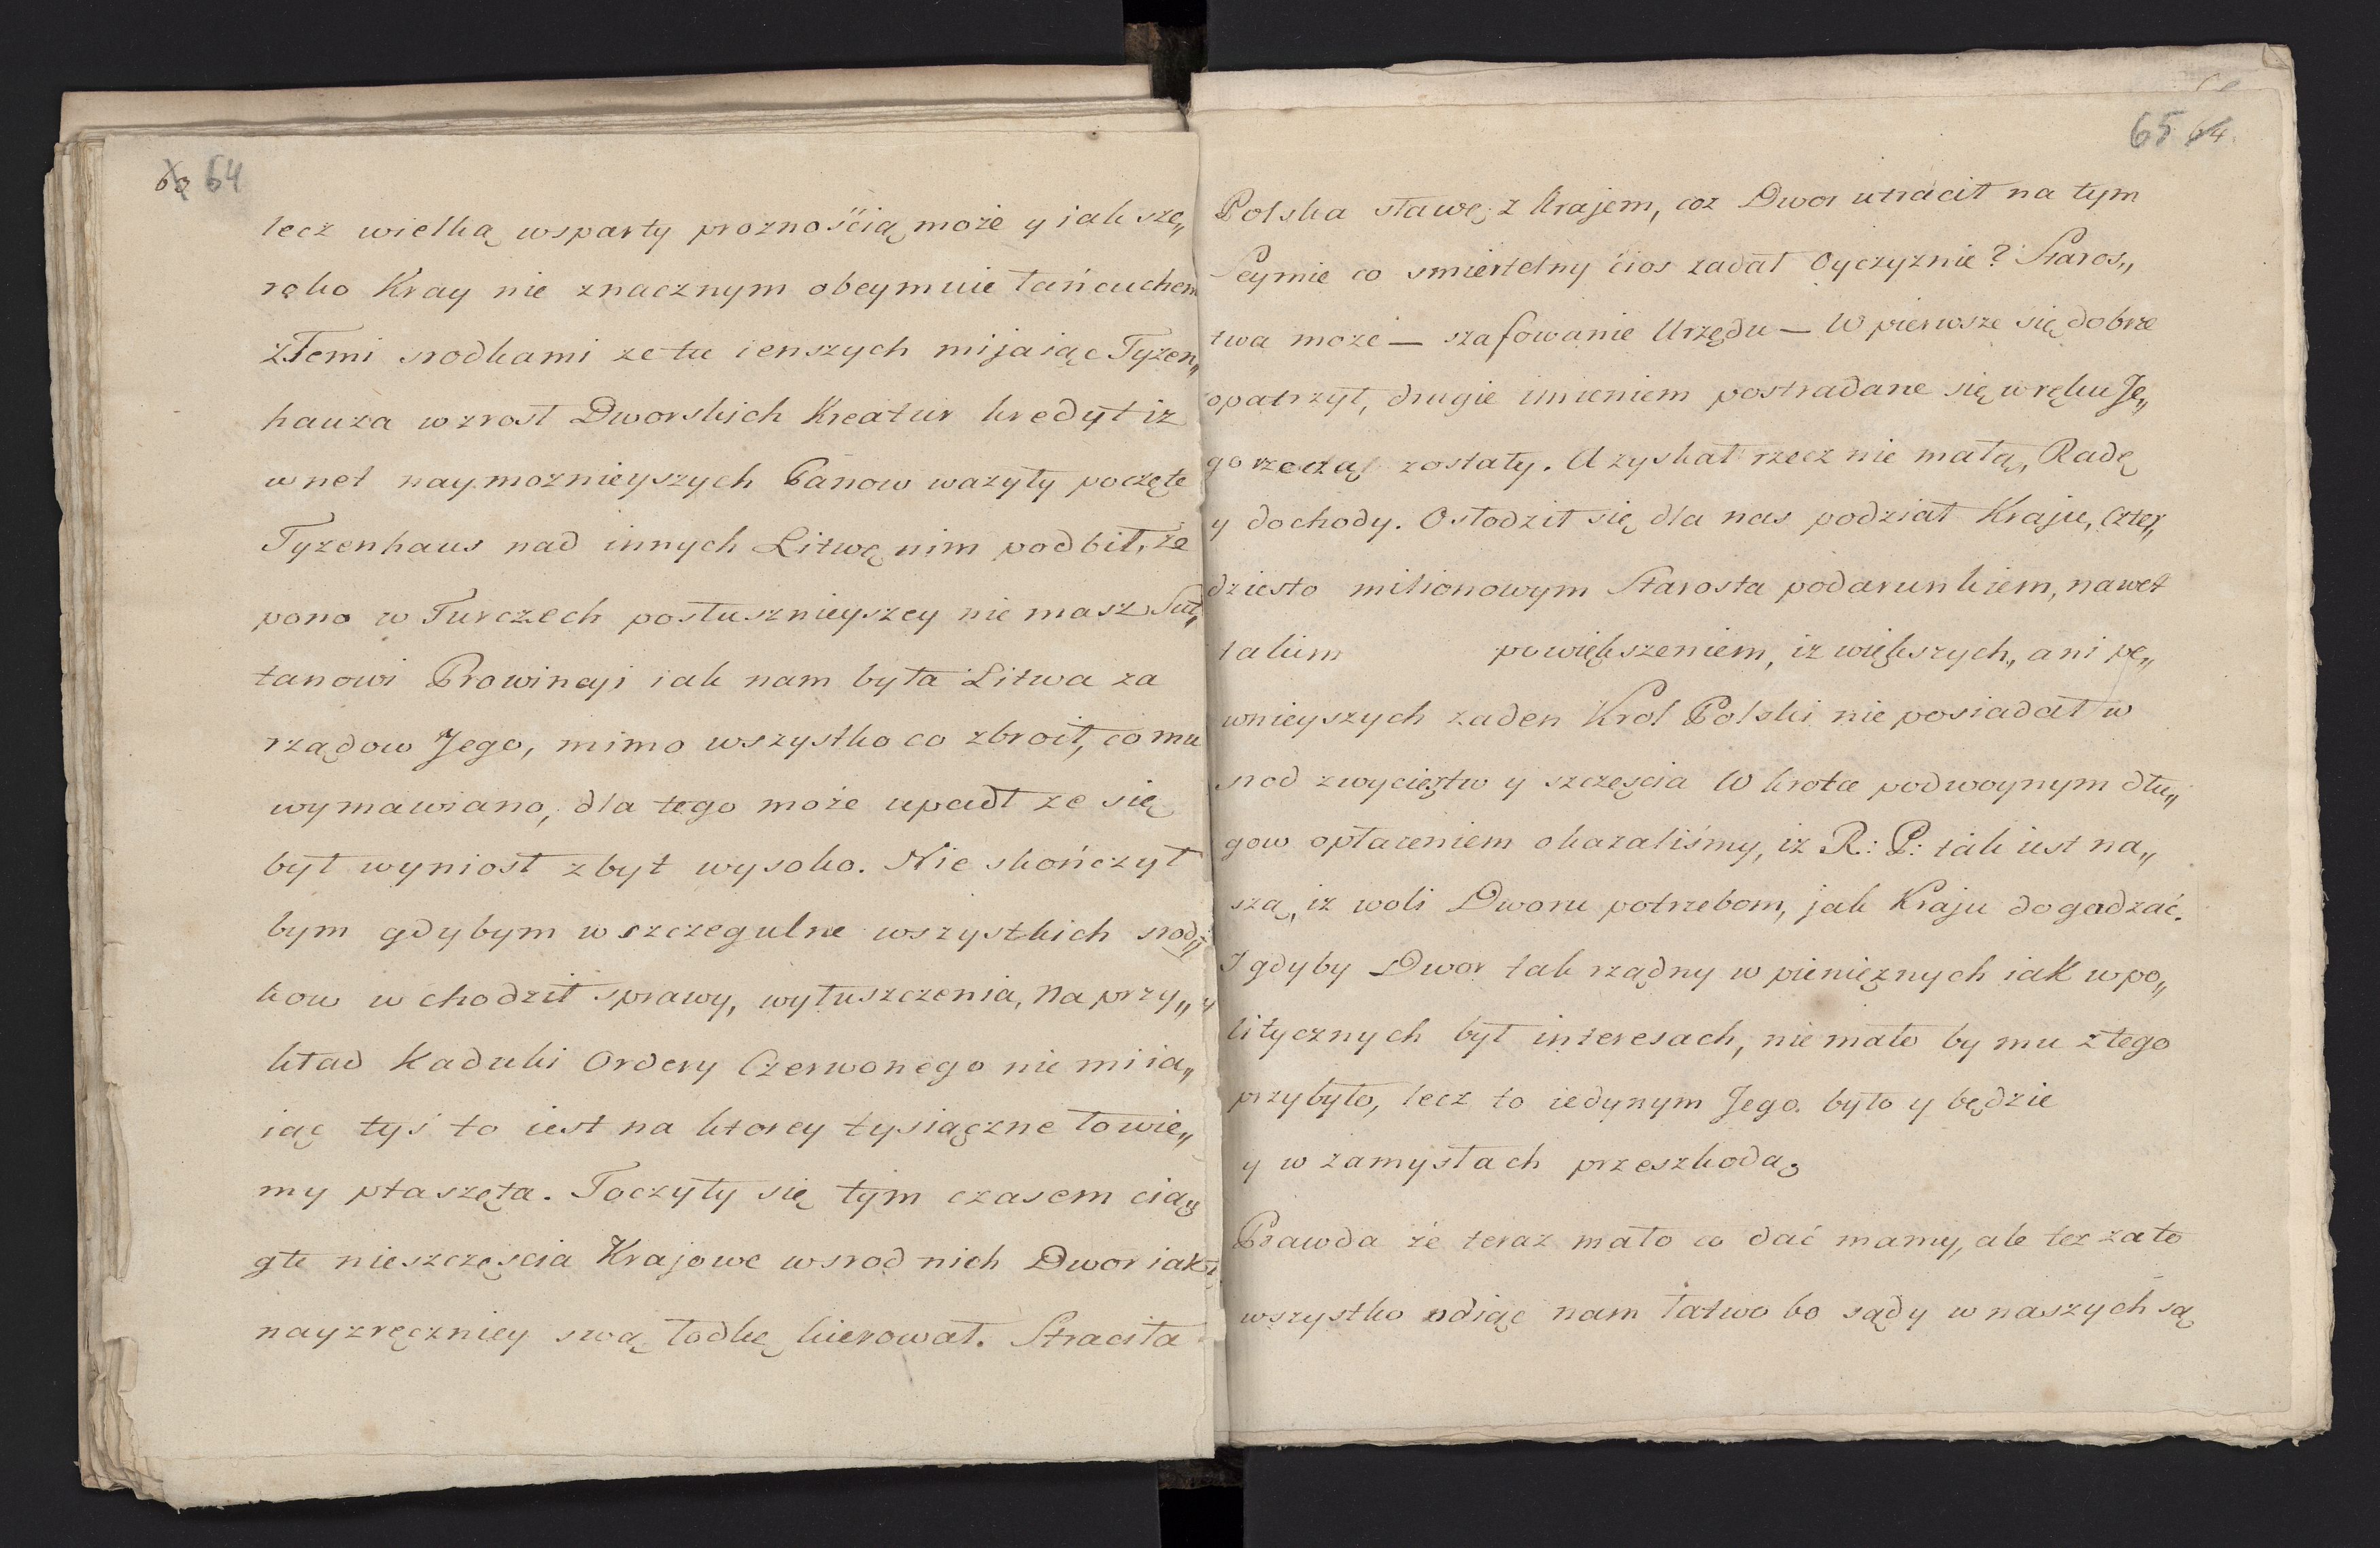 64
lecz wielką wsparty proznościąmoże y iak sze„
roko Kray nie znacznym obeymuie łańcuchem
złemi srodkami zetu ienszych mijaiąc Tyzen„
hauza wzrost Dworskich Kreatur kredyt iz
wnet naymoznieyszych Panow wazyły poczęte
Tyzenhaus nad innych Litwę nim podbił, że
pono w Turczech posłusznieyszey nie masz Suł„
tanowi Prowincyi iak nam była Litwa za
rządow Jego, mimo wszystko co zbroił, co mu
wymawiano, dla tego może upadł ze się
był wyniosł zbyt wysoko. Nie skończył
bym gdybym w szczegulne wszystkich srod„
kow wchodził sprawy, wyłuszczenia, na przy„
kład Kaduki Ordery Czerwonego nie miia„
iąc tyś to iest na ktorey tysiączne łowie„
my ptaszęta. Toczyły się tym czasem cią„
głe nieszczęscia Krajowe wsrod nich Dwor iak
nayzręczniey swą łodkę kierował. Straciła
65 64
Polska sławę z Krajem, coz Dwor utracił na tym
Seymie co smiertelny ćios zadał Oyczyznie? Staros„
twa może — szafowanie Urzędu — W pierwsze się dobrze
opatrzył, drugie imieniem postradane się w ręku Je„
go rzeczą zostały. Uzyskał rzecz nie małą, Radę
y dochody. Osłodził się dla nas podział Kraju, czter„
dziesto milionowym Starosta podarunkiem, nawet
takim powiększeniem, iz większych, ani pe„
wnieyszych zaden Krol Polski nie posiadał w
srod zwycięztw y szczęscia W krotce podwoynym dłu„
gow opłaceniem okazaliśmy, iz R: P: tak iest na„
szą, iz woli Dworu potrzebom, jak Kraju dogadzać.
I gdyby Dwor tak rządny w pieniężnych iak w po„
litycznych był interesach, nie mało by mu z tego
przybyło, lecz to iedynym Jego było y będzie
y w zamysłach przeszkodą
Prawda że teraz mało co dać mamy, ale tez zato
wszystko odiąć nam łatwo bo sądy w naszych są